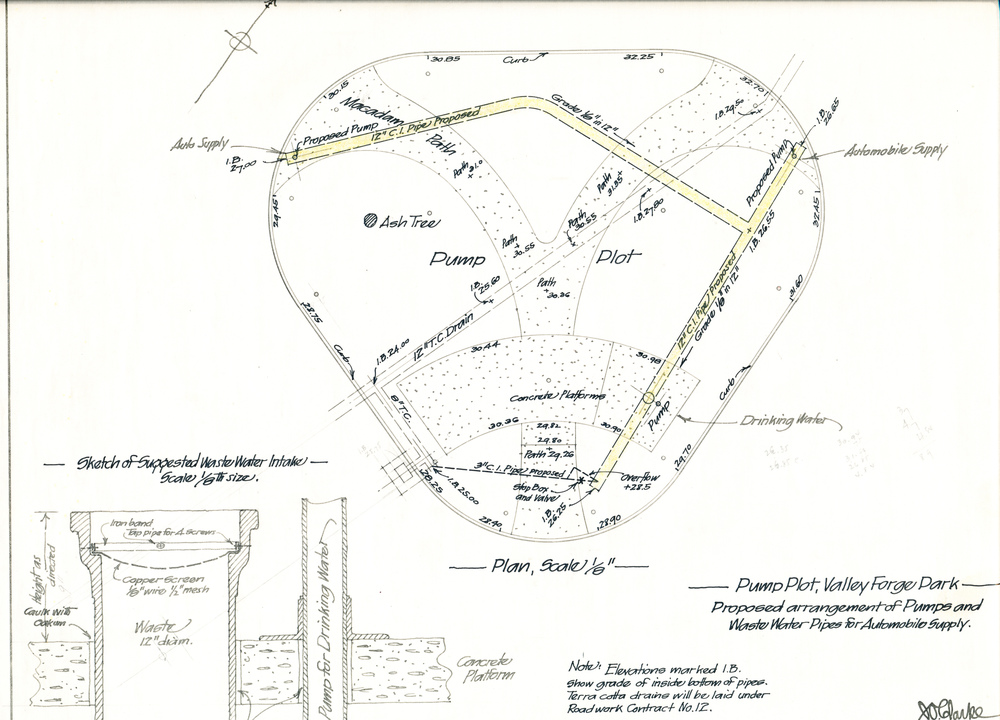 30.85
Curb
32.25
30.15
32.70
Macadam
Path
Proposed Pump
12" C.I. Pipe Proposed
Grade 1/8" in 12"
I.B. 24.50
I.B.
26.65
Auto Supply
I.B.
27.00
Automobile Supply
Proposed Pump
Path
31.0
Path
31.35
I.B. 27.80
29.45
32.45
Ash Tree
Path
30.55
Path
30.55
I.B. 26.55
Pump Plot
Path
30.26
I.B.
25.60
31.60
28.75
12" T.C. Drain
12" C.I. Pipe Proposed
Grade 1/8" in 12"
Curb
I.B. 24.00
30.44
30.98
Curb
8" T.C.
Concrete Platforms
Pump
Drinking Water
30.36
29.82
30.90
29.80
Path 29.26
29.70
Sketch of Suggested Waste Water Intake
Scale 1/8th size.
3" C.I. Pipe proposed
Overflow
+28.5
Stop Box
and Valve
28.25
I.B. 25.00
I.B.
26.25
28.40
28.90
Plan, Scale 1/8"
Iron band
Tap pipe for A screws
Height as
directed
Copper Screen
1/16" wire 1/2" mesh
Caulk with
Oakum
Waste
12" diam.
Pump for Drinking Water
Concrete
Platform
Pump Plot, Valley Forge Park
Proposed arrangement of Pumps and
Waste Water Pipes for Automobile Supply.
Note: Elevations marked I.B.
show grade of inside bottom of pipes.
Terra cotta drains will be laid under
Roadwork Contract No. 12.